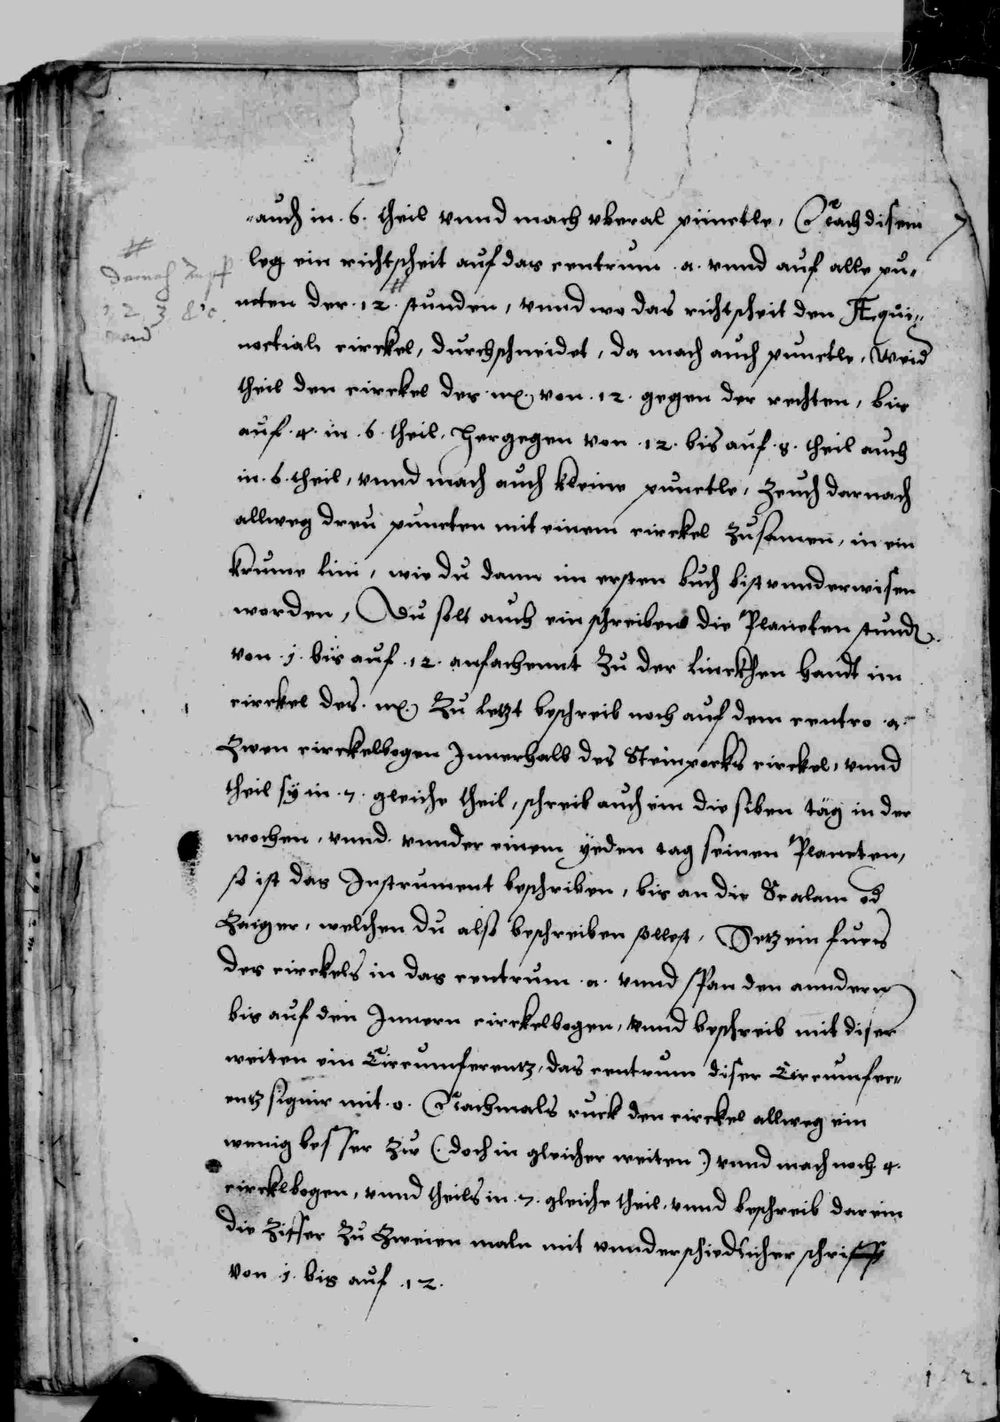 auch in .6. theil vnnd mach vberal pünctle, Nach disem
leg ein richtscheit auf das centrum .a. vnnd auf alle pu-
ncten der .12. stunden, vnnd wo das richtscheit den Æqui-
noctials circkel, durchschneidet, da mach auch punctle, Weid
theil den circkel des .♑. von .12. gegen der rechten, bis
auf .4. in .6. theil, Hergegen von .12. bis auf .8. theil auch
in .6. theil, vnnd mach auch kleine punctle, Zeuch darnach
allweg dreu puncten mit einem circkel zusamen, in ein
krume lini, wie du dann im ersten buch bist vnnderwisen
worden, Du solt auch einschreiben die Planeten stund
von .1. bis auf .12. anfachennt zu der linckhen handt im
circkel des .♑. Zu letzt beschreib noch auf dem centro .a.
Zwen circkelbogen Innerhalb des Steinpocks circkel, vnnd
theil sy in .7. gleiche theil, schreib auch ein die siben täg in der
wochen, vnnd vnnder einem yeden tag seinen Planeten,
so ist das Instrument beschriben, bis an die Scalam od
Zaiger, welchen du also beschreiben sollest, Setz ein fues
des circkels in das centrum .a. vnnd span den anndern
bis auf den Innern circkelbogen, vnnd beschreib mit diser
weiten ein Circumferentz, das centrum diser Circumfer-
entz signir mit .o. Nachmals ruck den circkel allweg ein
wenig besser zu (doch in gleicher weiten) vnnd mach noch .4.
circkelbogen, vnnd theils in .7. gleiche theil, vnnd beschreib darein
die Ziffer zu Zweien maln mit vnnderschiedlicher schrifft
von .1. bis auf .12.
# Darnach
1. 2. 3. &c.